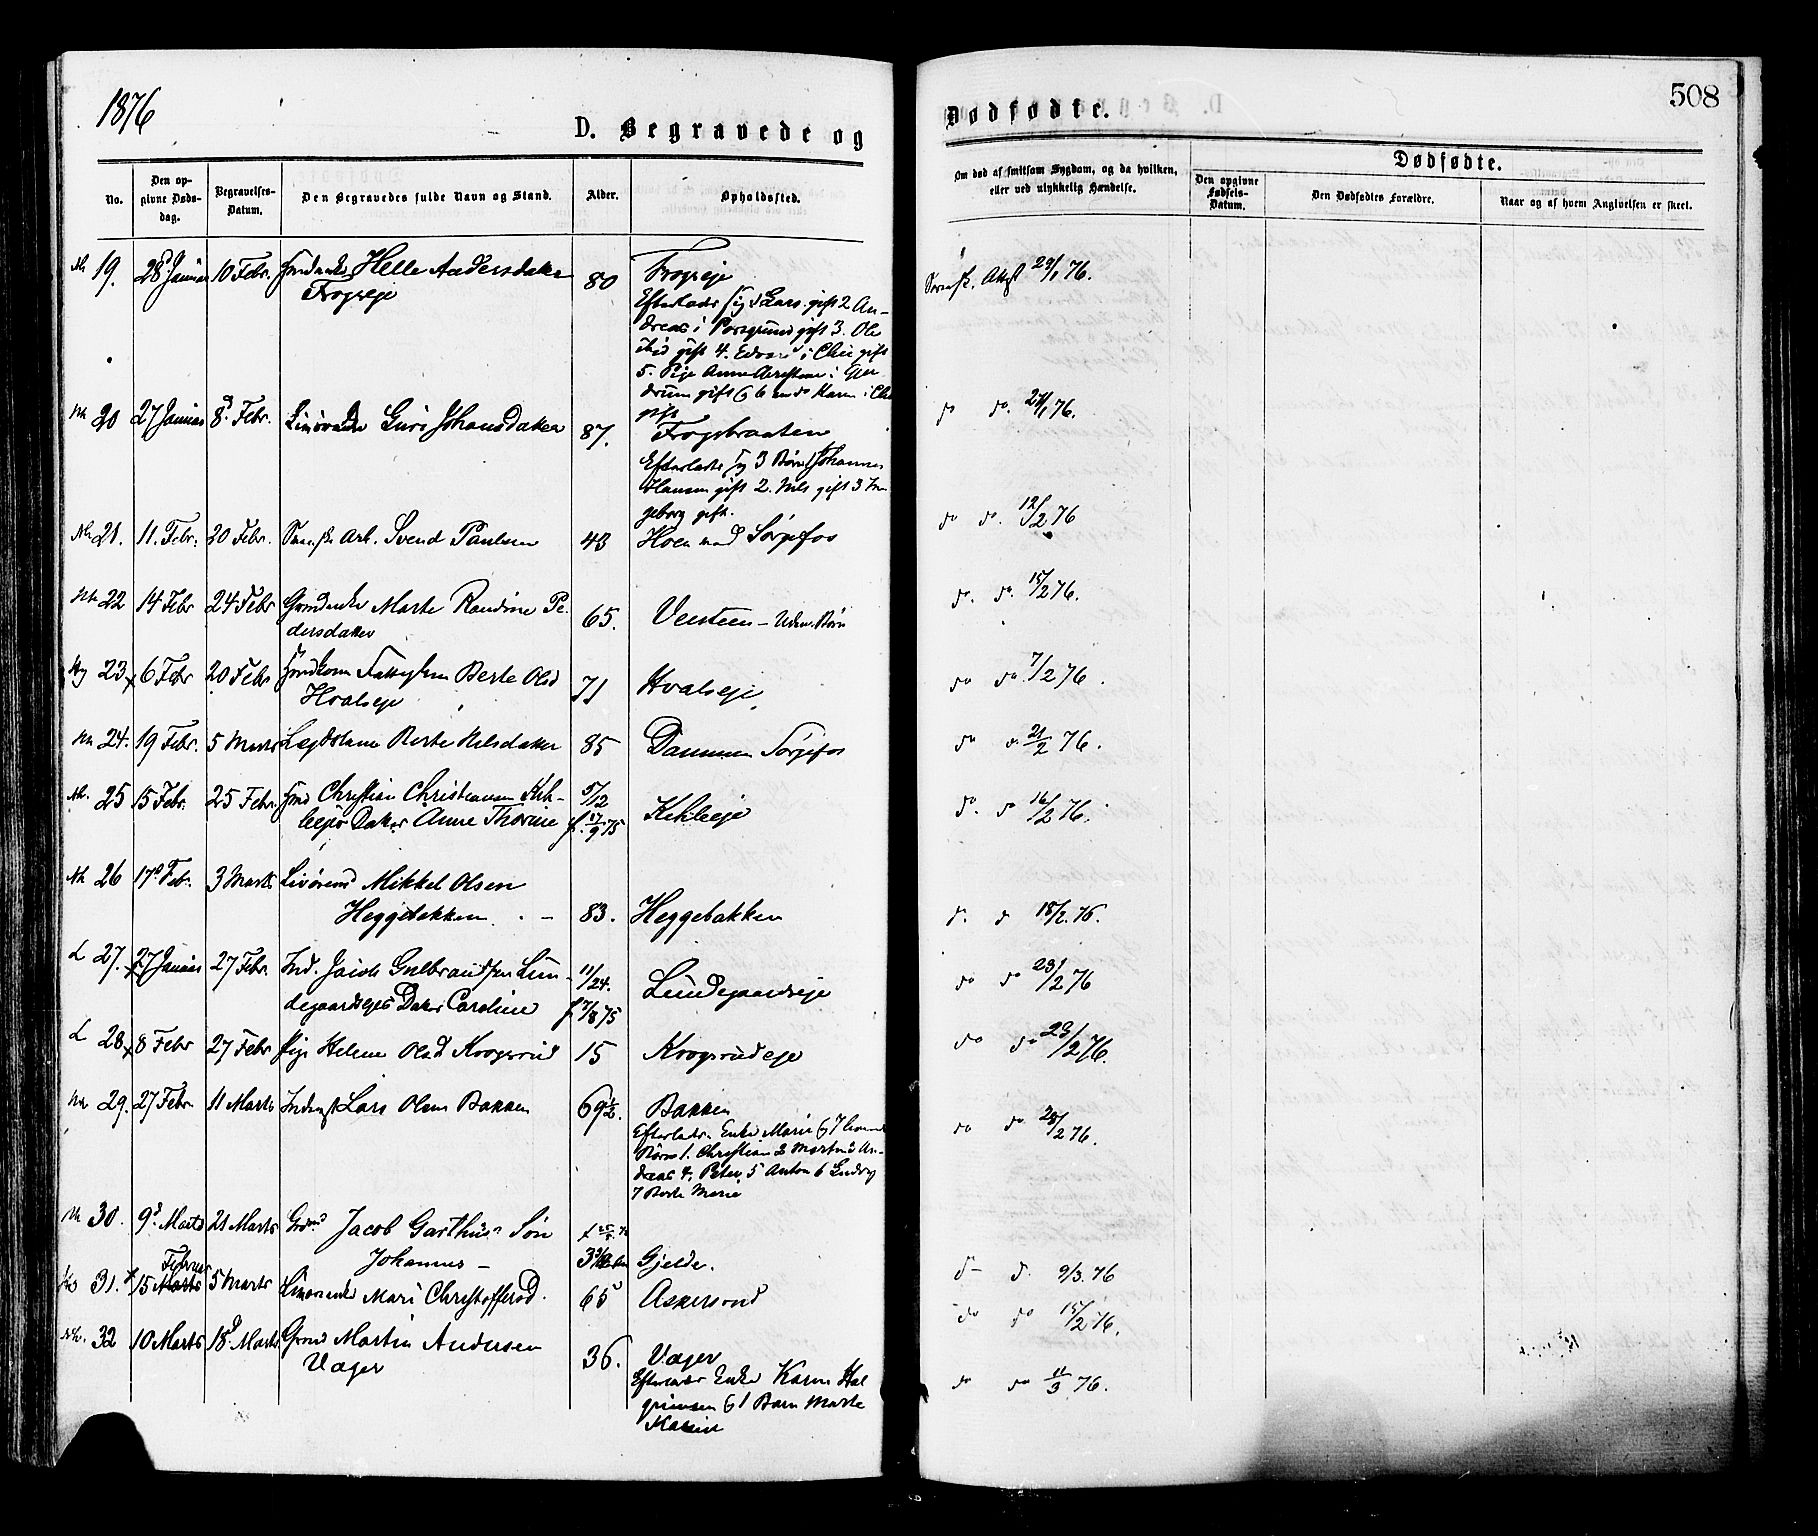 1876
D. Begravede og
Dødfødte.
508
No.
Den op-
givne Døds-
dag.
Begravelses-
Datum.
Den Begravedes fulde Navn og Stand.
Alder.
Opholdssted.
Om død af smitsom Sygdom, og da hvilken,
eller ved ulykkelig Hændelse.
Dødfødte.
Den opgivne
Fødsels-
Datum.
Den Dødfødtes Forældre.
Naar og af hvem Angivelsen er skeet.
19. 28 Januar 10 Febr. Helle Andersdatter 80 Frogseje
Frogseje
Efterlader sig Lars gift 2 An-
dreas i Porsgrund gift 3. Ole
gift 4. Edvard i Chr gift
5. Pige Anne i
drum gift 6 Karen i Chr
gift
Skifterets Attest 29/1 76.
Nk 20 27 Januar 8d. Febr. Guri Johansdatter 87. Frogsbraaten
do do. 29/1 76.
Efterlader sig 3 Børn Johannes
Hansen gift 2. Nils gift 3 In-
geborg gift.
Nk 21. 11. Febr. 20 Febr. Arb. Svend Paulsen 43 Hoen ved Sørpefos
do do. 12/2 76
Nk 22 14 Febr 24 Febr Marte Randine Pe- 65. Versteen - Uden Børn
dersdatter
do. do. 15/2 76.
23 6 Febr 20 Febr Berte Olsd 71 Hvalseje
Hvalseje
do do. 7/2 76.
Nk 24. 19 Febr. 5 Marts Lægdslem Berte Nilsdatter 85 Dammen Sørpefos
do d. 21/2 76.
Nk. 25 15 Febr. 25 Febr. Christian Christiansen 5/12
Datter Anne Thorine f. 17/9 75
do. do 16/2 76.
Nk 26 17d Feb. 3 Marts Mikkel Olsen
Heggebakken. - 83. Heggebakken
d. d 18/2. 76.
L 27. 27 Januar 27 Febr. Ind. Jacob Gulbrandsen Lun- 11/24. Lundegaardseje
degaardsejes Datter Caroline f 7/8 75
do do 23/2 76
L 28 8 Febr 27 Febr Pige Helene Olsd Krogsrud 15 Krogsrudeje
do do 23/2 76.
Nk 29. 27 Febr. 11 Marts Lars Olsen Bakken 69 1/2. Bakken
Efterlader Enke Marie & 7
Børn 1. Christian 2 Martin 3 An-
dreas 4. Peter, 5 Anton 6 Ludvig
7 Berte Marie
do do 28/2 76.
Nk 30. 9d. Marts 21 Marts Jacob Garthus Søn
Johannes - Gjelde.
d- d. 9/3. 76
Februar
31. 15 Marts 5 Marts Mari Christoffersd. 65 Askerud
do do 15/2 76.
Nk. 32 10 Marts 18d. Marts Martin Andersen 36. Vager
Vager
Efterlader Enke Karen Hal-
grimsen & 1 Barn Marte
Karine
do do 11/3 76.